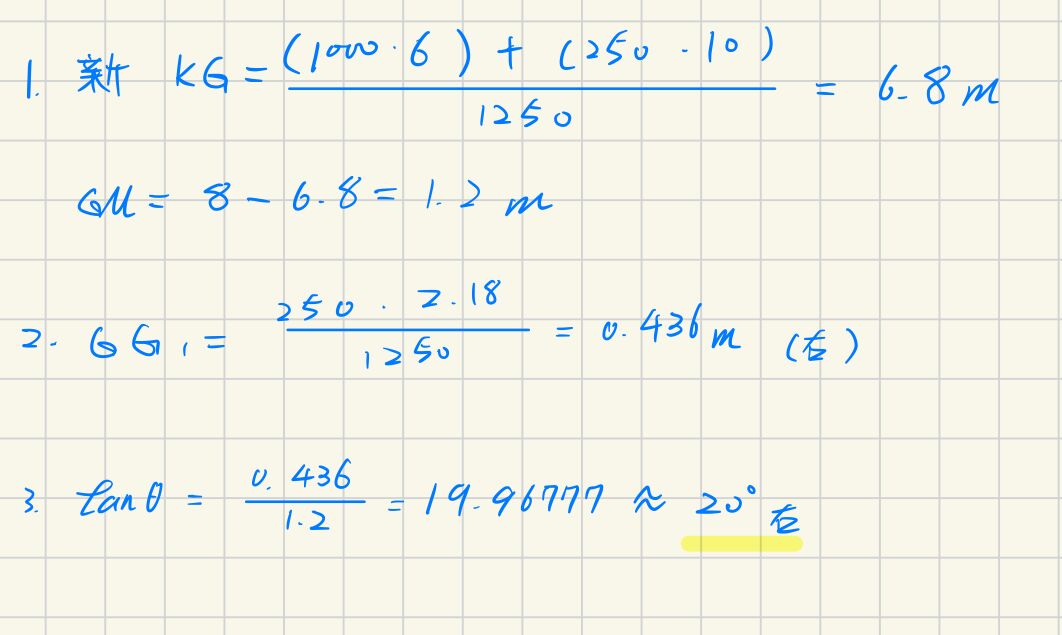 1. 新 KG = (1000·6) + (250·10) / 1250 = 6.8 m
GM = 8 - 6.8 = 1.2 m
2. GG₁ = 250·2.18 / 1250 = 0.436 m (右)
3. tanθ = 0.436 / 1.2 = 19.96777 ≈ 20° 右